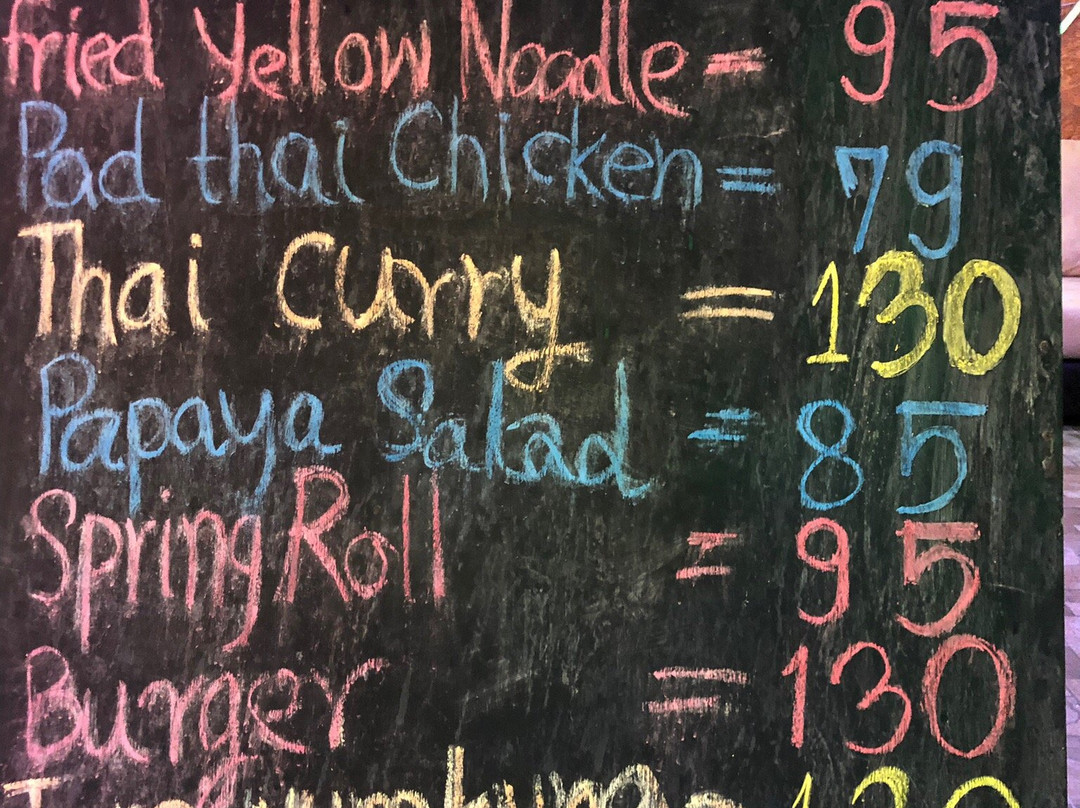 fried Yellow Noodle = 95
Pad thai Chicken = 79
Thai Curry = 130
Papaya Salad = 85
Spring Roll = 95
Burger = 130